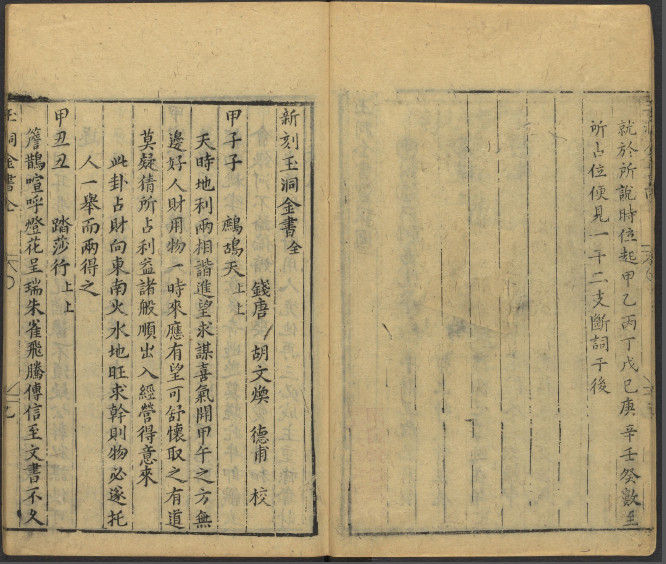 就於所說時位起甲乙丙丁戊己庚辛壬癸數至
所占位便見一干二支斷詞于後
新刻玉洞金書全
錢唐 胡文煥 德甫 校
甲子子 鷓鴣天上上
天時地利兩相諧進望求謀喜氣開甲午之方無
邊好人財用物一時來應有望可舒懷取之有道
莫疑猜所占利益諸般順出入經營得意來
此卦占財向東南火水地旺求幹則物必遂托
人一舉而兩得之
甲丑丑 踏莎行上上
簷鵲喧呼燈花呈瑞朱雀飛騰傳信至文書不久
玉洞金書全